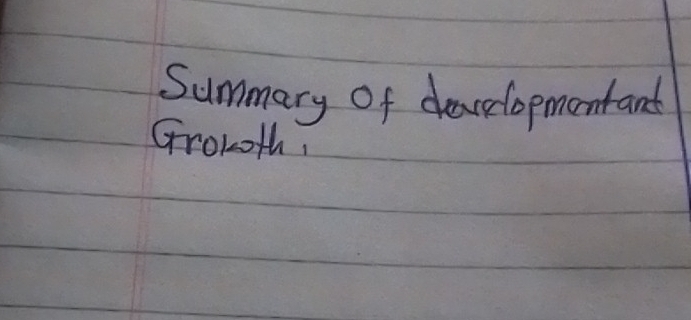 Summary of development and
Growth.